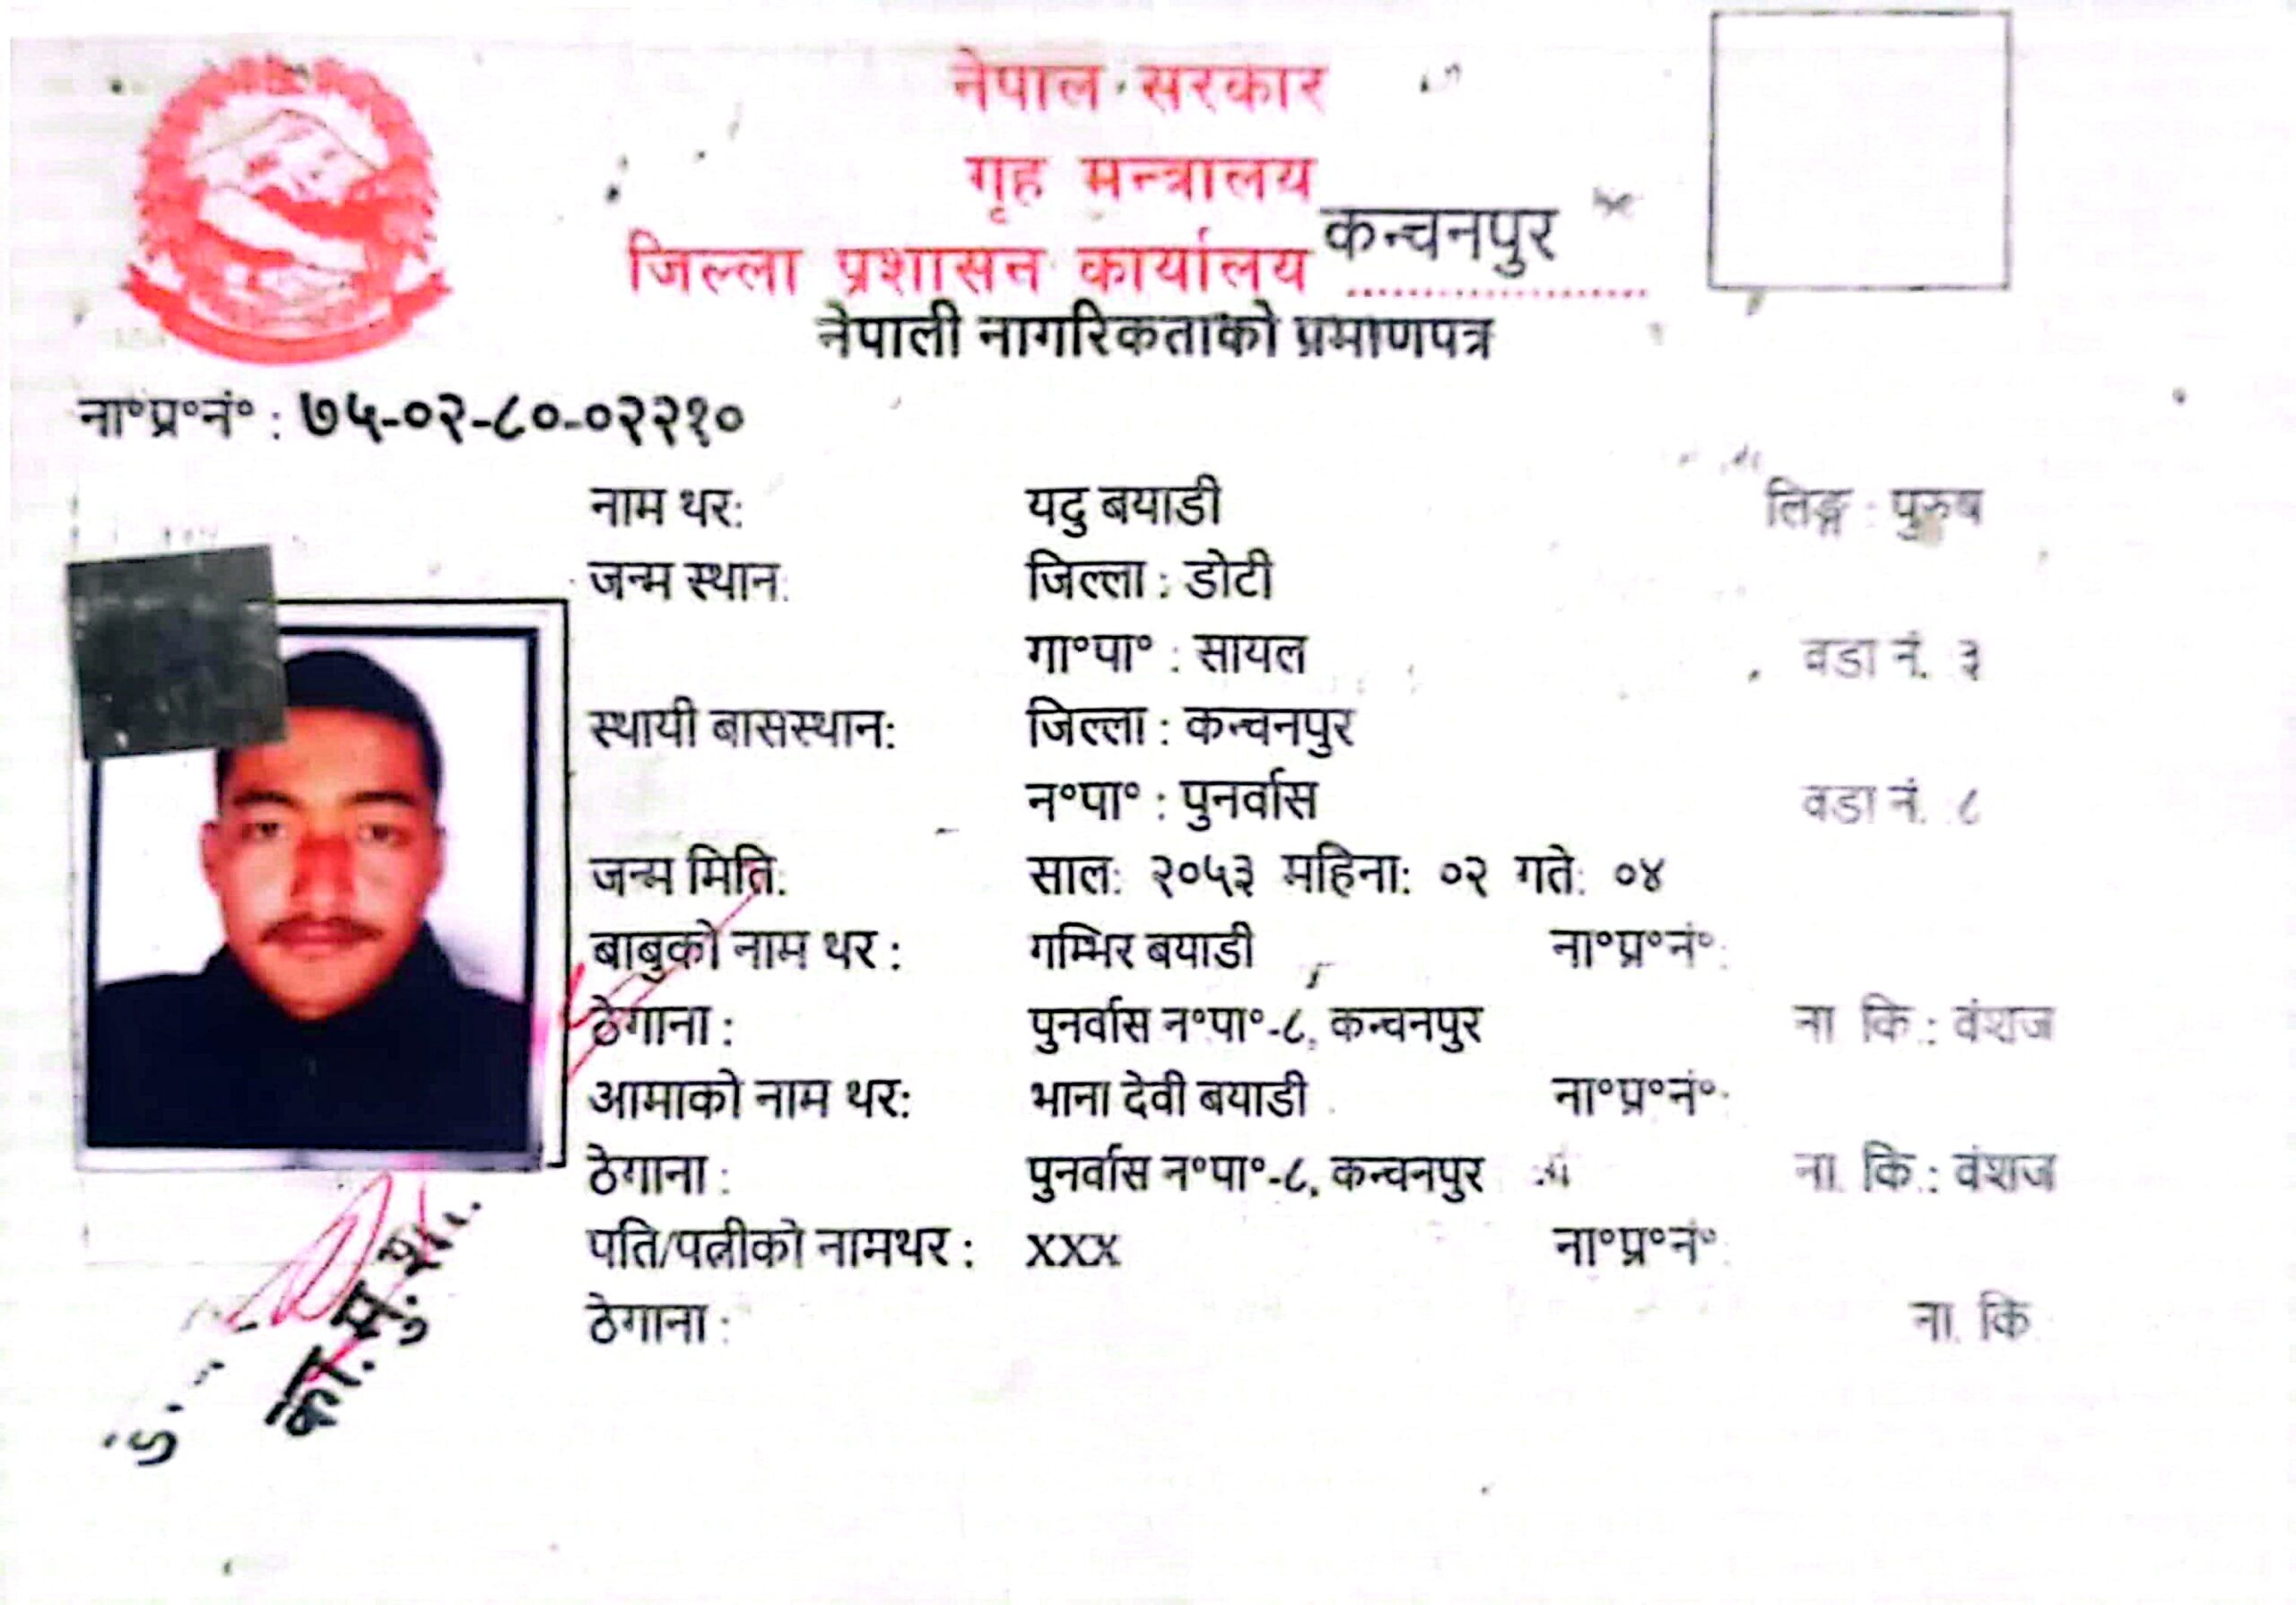 नेपाल सरकार
गृह मन्त्रालय
जिल्ला प्रशासन कार्यालय कन्चनपुर
नेपाली नागरिकताको प्रमाणपत्र
ना॰प्र॰नं॰ : ७५-०२-८०-०२२१०
नाम थर: यदु बयाडी लिङ्ग : पुरुष
जन्म स्थान: जिल्ला : डोटी
गा॰पा॰ : सायल वडा नं. ३
स्थायी बासस्थान: जिल्ला : कन्चनपुर
न॰पा॰ : पुनर्वास वडा नं. ८
जन्म मिति: साल: २०५३ महिना: ०२ गते: ०४
बाबुको नाम थर : गम्भिर बयाडी ना॰प्र॰नं॰:
ठेगाना : पुनर्वास न॰पा॰-८, कन्चनपुर ना कि.: वंशज
आमाको नाम थर: भाना देवी बयाडी ना॰प्र॰नं॰:
ठेगाना : पुनर्वास न॰पा॰-८, कन्चनपुर ना. कि.: वंशज
पति/पत्नीको नामथर : XXX ना॰प्र॰नं॰:
ठेगाना : ना. कि
का. मु. शा.